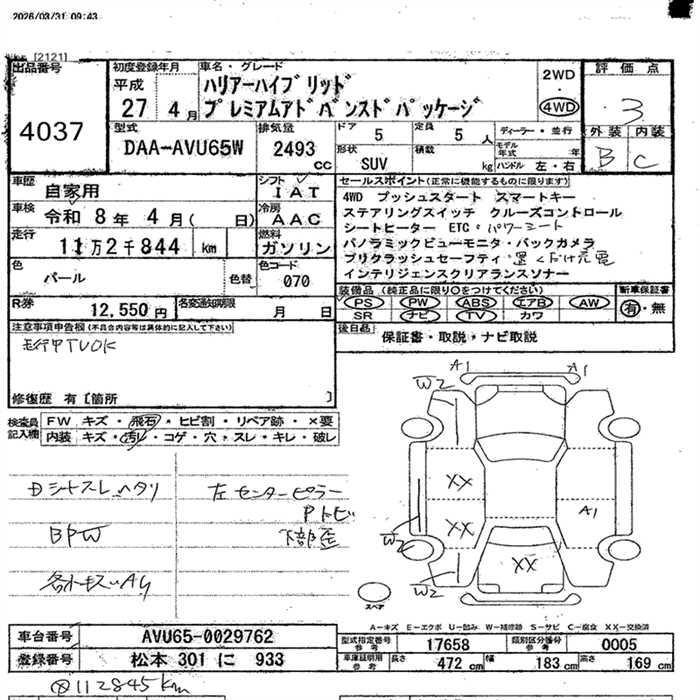 2026/03/31 09:43
[2121]
出品番号
4037
初度登録年月
平成
27年4月
車名・グレード
ハリアーハイブリッド
プレミアムアドバンスドパッケージ
2WD
・
4WD
評価点
3
外装 内装
B C
型式
DAA-AVU65W
排気量
2493 cc
ドア
5
定員
5 人
形状
SUV
積載
kg
ディーラー・並行
モデル年式 年
ハンドル 左・右
車歴
自家用
シフト
IAT
車検
令和 8年 4月( 日)
冷房
AAC
走行
11万2千844 km
燃料
ガソリン
色
パール
色替
色コード
070
R券
12,550円
名変通知期限
月 日
セールスポイント(正常に機能するものに限ります)
4WD プッシュスタート スマートキー
ステアリングスイッチ クルーズコントロール
シートヒーター ETC・パワーシート
パノラミックビューモニタ・バックカメラ
プリクラッシュセーフティ 置くだけ充電
インテリジェンスクリアランスソナー
装備品(純正品に限り○をつけてください)
PS PW ABS エアB AW
SR ナビ TV カワ
新車保証書
有・無
後日品
保証書・取説・ナビ取説
注意事項申告欄(不具合内容等は具体的に記入して下さい)
走行中TVOK
修復歴 有〔箇所 〕
検査員記入欄
FW キズ・飛石・ヒビ割・リペア跡・×要
内装 キズ・汚レ・コゲ・穴・スレ・キレ・破レ
Dシートスレ、ヘタリ
左センターピラー
Pトビ
BPW
下部歪
A1 A1
W2
XX
XX
A1
W2
XX
W2
スペア
A-キズ E-エクボ U-凹み W-補修跡 S-サビ C-腐食 XX-交換済
車台番号
AVU65-0029762
登録番号
松本 301 に 933
型式指定番号参考
17658
類別区分番号参考
0005
車庫証明用参考
長さ 472 cm 幅 183 cm 高さ 169 cm
⊗112845km